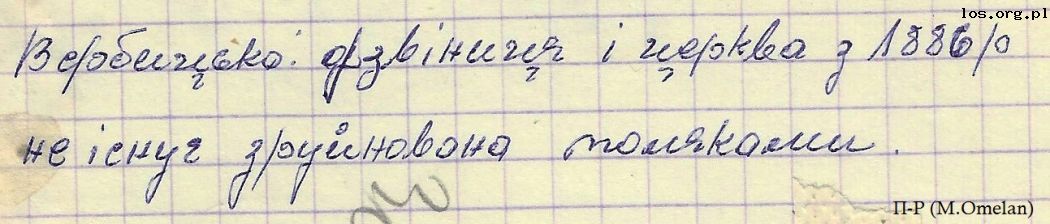 los.org.pl
Вербицько: дзвіниця і церква з 1886/р
не існує зруйнована поляками.
П-Р (M.Omelan)